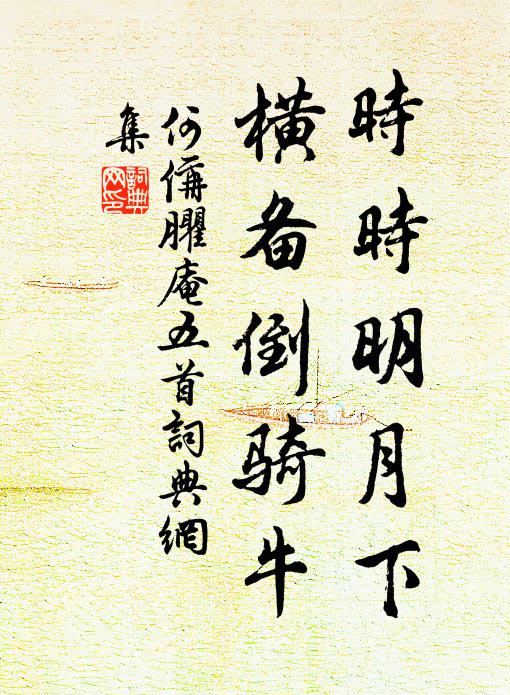 時時明月下
橫备倒骑牛
何偁臞庵五首詞典網
集
詞典
网印